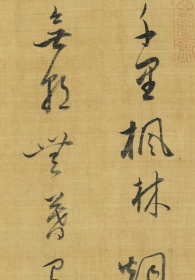 千里楓林烟
無朝無暮